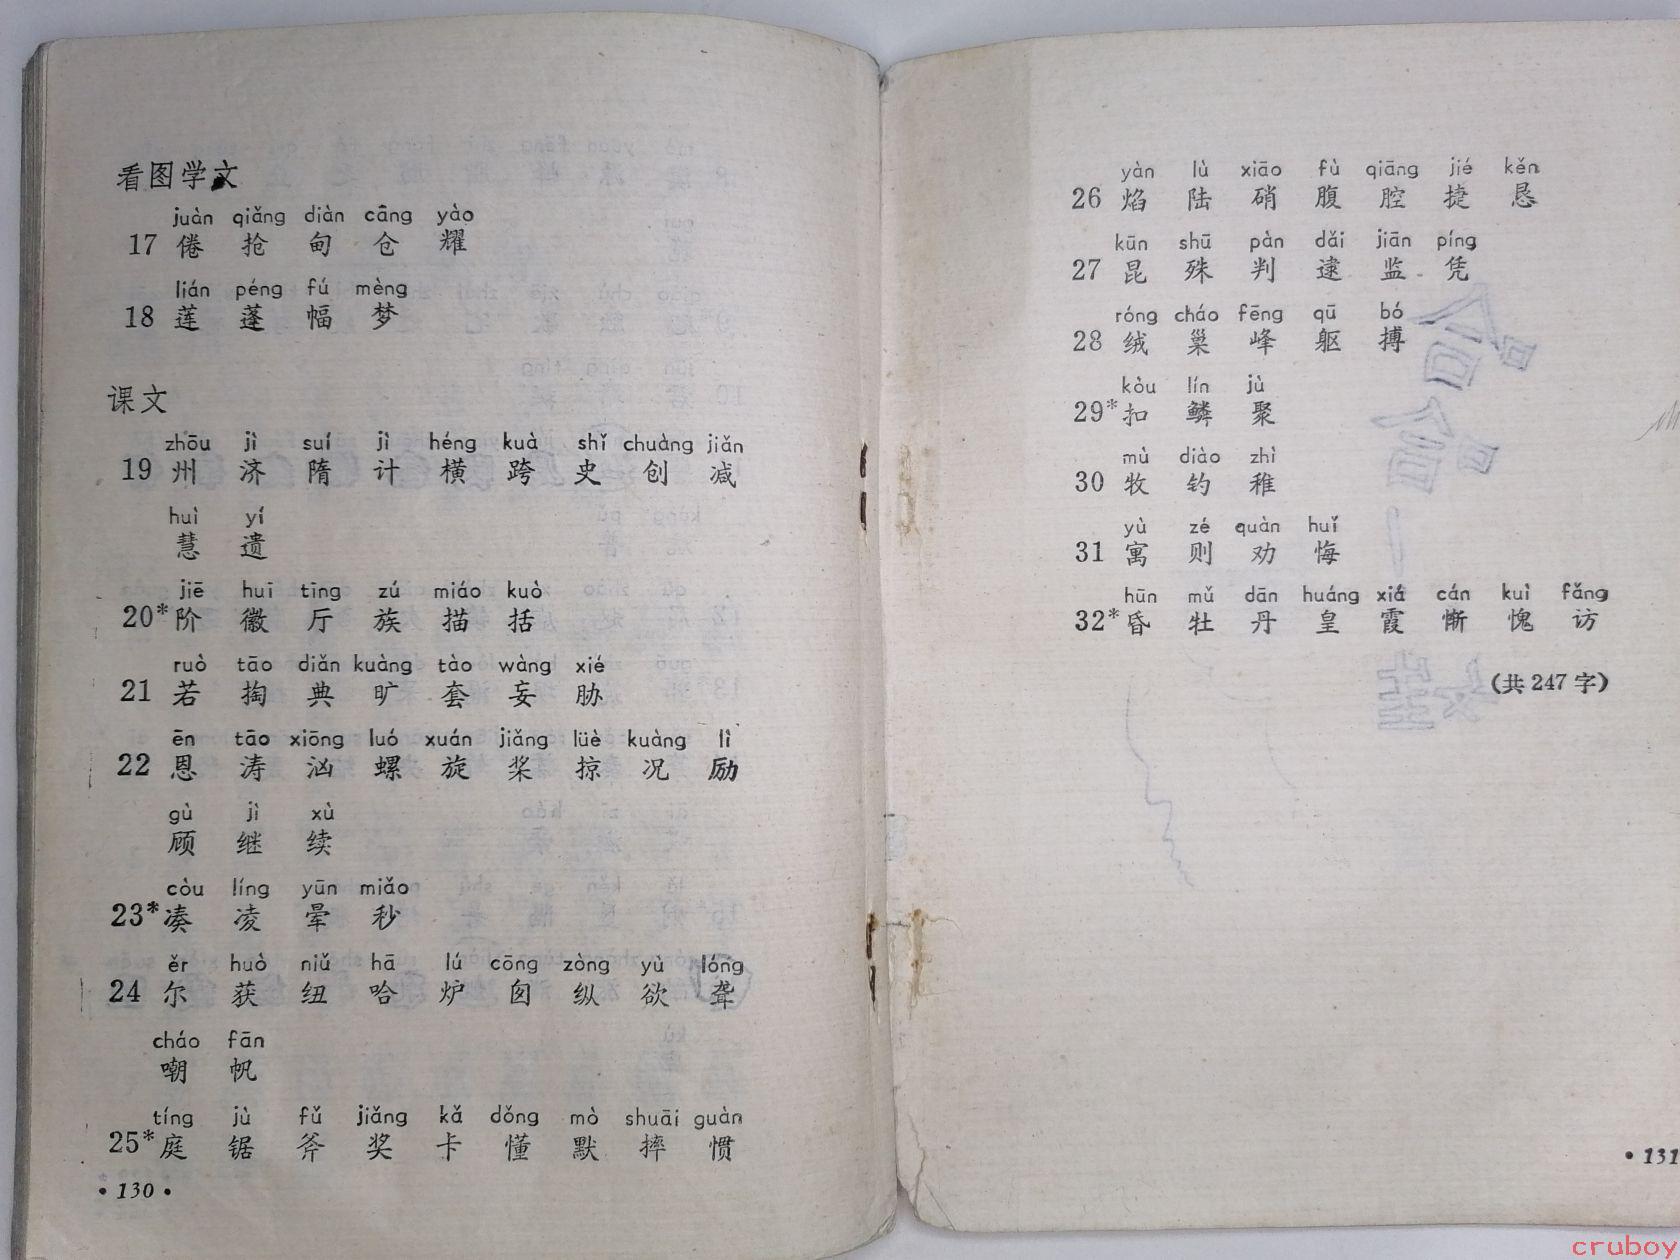 看图学文
juàn qiǎng diàn cāng yào
17 倦 抢 甸 仓 耀
lián péng fú mèng
18 莲 蓬 幅 梦
课文
zhōu jì suí jì héng kuà shǐ chuàng jiǎn
19 州 济 隋 计 横 跨 史 创 减
huì yí
慧 遗
jiē huī tīng zú miáo kuò
20* 阶 徽 厅 族 描 括
ruò tāo diǎn kuàng tào wàng xié
21 若 掏 典 旷 套 妄 胁
ēn tāo xiōng luó xuán jiǎng lüè kuàng lì
22 恩 涛 汹 螺 旋 桨 掠 况 励
gù jì xù
顾 继 续
còu líng yūn miǎo
23* 凑 凌 晕 秒
ěr huò niǔ hā lú cōng zòng yù lóng
24 尔 获 纽 哈 炉 囱 纵 欲 聋
cháo fān
嘲 帆
tíng jù fǔ jiǎng kǎ dǒng mò shuāi guàn
25* 庭 锯 斧 奖 卡 懂 默 摔 惯
• 130 •
yàn lù xiāo fù qiāng jié kěn
26 焰 陆 硝 腹 腔 捷 恳
kūn shū pàn dǎi jiān píng
27 昆 殊 判 逮 监 凭
róng cháo fēng qū bó
28 绒 巢 峰 躯 搏
kòu lín jù
29* 扣 鳞 聚
mù diào zhì
30 牧 钓 稚
yù zé quàn huǐ
31 寓 则 劝 悔
hūn mǔ dān huáng xiá cán kuì fǎng
32* 昏 牡 丹 皇 霞 惭 愧 访
（共 247 字）
• 131
cruboy